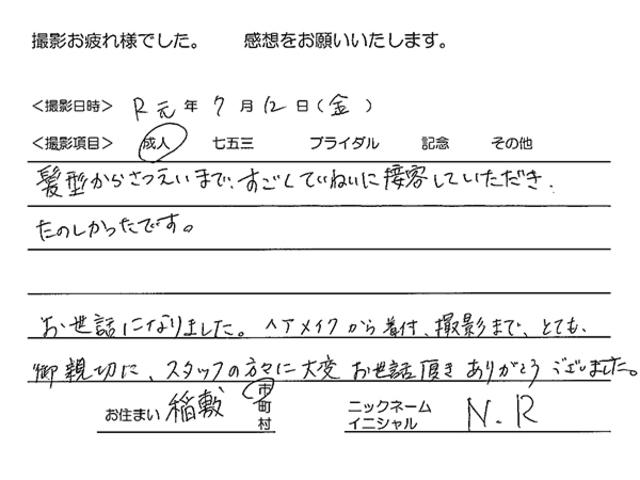 撮影お疲れ様でした。 感想をお願いいたします。
＜撮影日時＞ R元年 7月12日（金）
＜撮影項目＞ 成人 七五三 ブライダル 記念 その他
髪型からさつえいまで、すごくていねいに接客していただき、
たのしかったです。
お世話になりました。ヘアメイクから着付、撮影まで、とても、
御親切に、スタッフの方々に大変お世話頂きありがとうございました。
お住まい 稲敷 市町村
ニックネーム イニシャル N.R